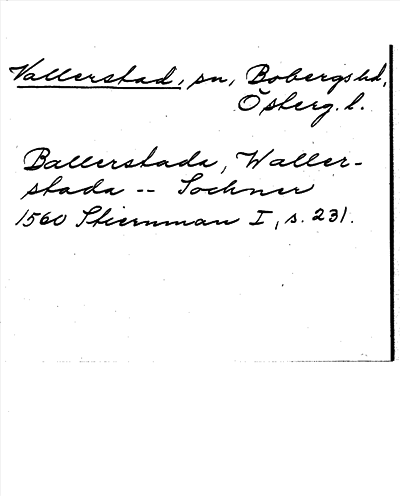 Vallerstad, sn, Bobergs hd,
Österg. l.
Ballerstada, Waller-
stada -- Sochner
1560 Stiernman I, s. 231.